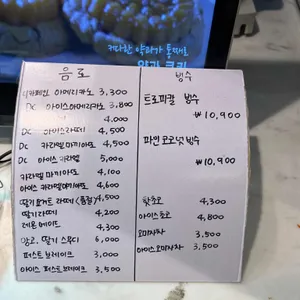 커다란 약과가 통째로
약과 쿠키
음료
디카페인 아메리카노 3,300
DC 아이스아메리카노 3,800
4,000
DC 아이스라떼 4,500
DC 카라멜 마끼아또 4,500
DC 아이스 카라멜 5,000
카라멜 마끼아또 4,100
아이스 카라멜마끼아또 4,600
딸기요거트 라떼 (품절) 4,500
딸기라떼 4,200
레몬 에이드 4,300
망고, 딸기 스무디 6,000
퍼스트 브레이크 3,000
아이스 퍼스트브레이크 3,500
빙수
트로피칼 빙수
₩10,900
파인 코코넛 빙수
₩10,900
핫초코 4,300
아이스초코 4,800
오미자차 3,500
아이스오미자차 3,500